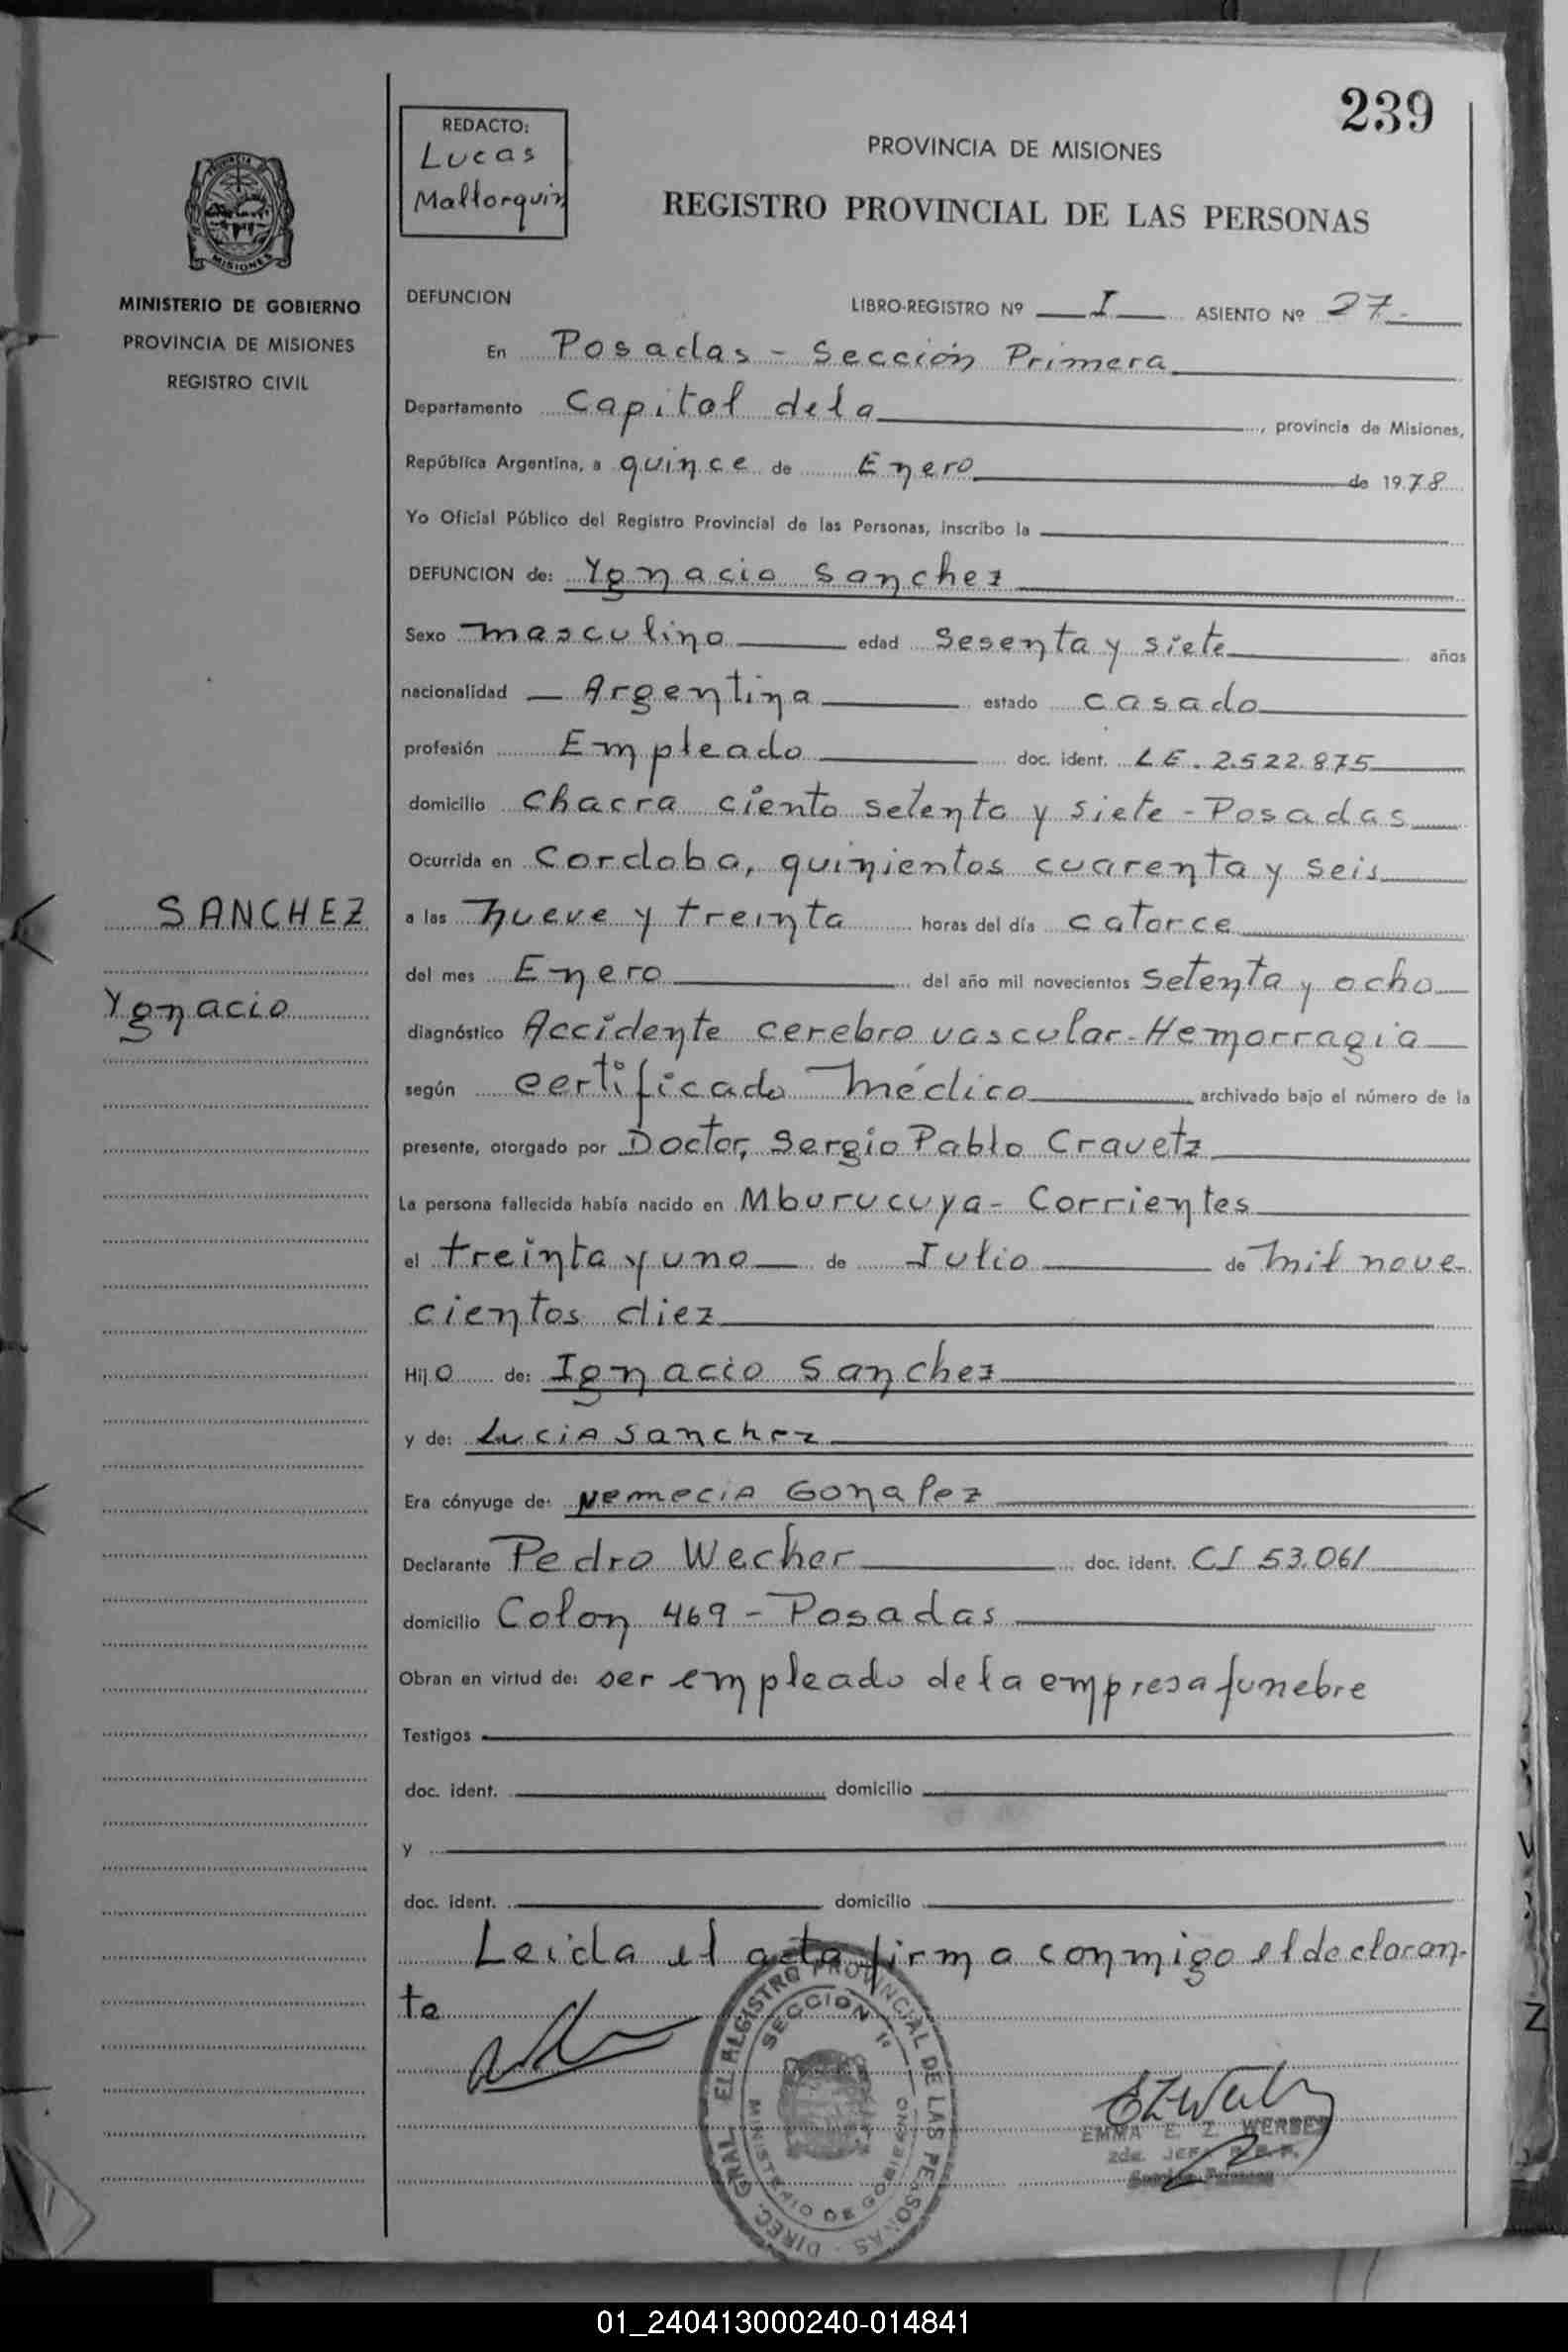 239
REDACTO:
Lucas
Mallorquin
PROVINCIA DE MISIONES
REGISTRO PROVINCIAL DE LAS PERSONAS
MISIONES
MINISTERIO DE GOBIERNO
PROVINCIA DE MISIONES
REGISTRO CIVIL
DEFUNCION LIBRO-REGISTRO Nº I ASIENTO Nº 27.
En Posadas - Sección Primera
Departamento Capital dela, provincia de Misiones,
República Argentina, a quince de Enero de 1978
Yo Oficial Público del Registro Provincial de las Personas, inscribo la
DEFUNCION de: Ygnacio Sanchez
Sexo masculino edad Sesenta y siete años
nacionalidad Argentina estado casado
profesión Empleado doc. ident. L E. 2.522.875
domicilio Chacra ciento setenta y siete - Posadas
Ocurrida en Cordoba, quinientos cuarenta y seis
SANCHEZ
Ygnacio
a las nueve y treinta horas del día catorce
del mes Enero del año mil novecientos setenta y ocho
diagnóstico Accidente cerebro vascular - Hemorragia
según certificado médico archivado bajo el número de la
presente, otorgado por Doctor, Sergio Pablo Cravetz
La persona fallecida había nacido en Mburucuya - Corrientes
el treinta y uno de Julio de mil nove-
cientos diez
Hijo de: Ignacio Sanchez
y de: Lucia Sanchez
Era cónyuge de: Nemecia Gonalez
Declarante Pedro Wecher doc. ident. CI 53.061
domicilio Colon 469 - Posadas
Obran en virtud de: ser empleado de la empresa funebre
Testigos
doc. ident. domicilio
y
doc. ident. domicilio
Leida el acta firma conmigo el declaran-
te
DIREC. GRAL. REGISTRO PROVINCIAL DE LAS PERSONAS
SECCION 1ª
MINISTERIO DE GOBIERNO
EMMA E. Z. WERBER
2da. JEFE R. P. P.
01_240413000240-014841